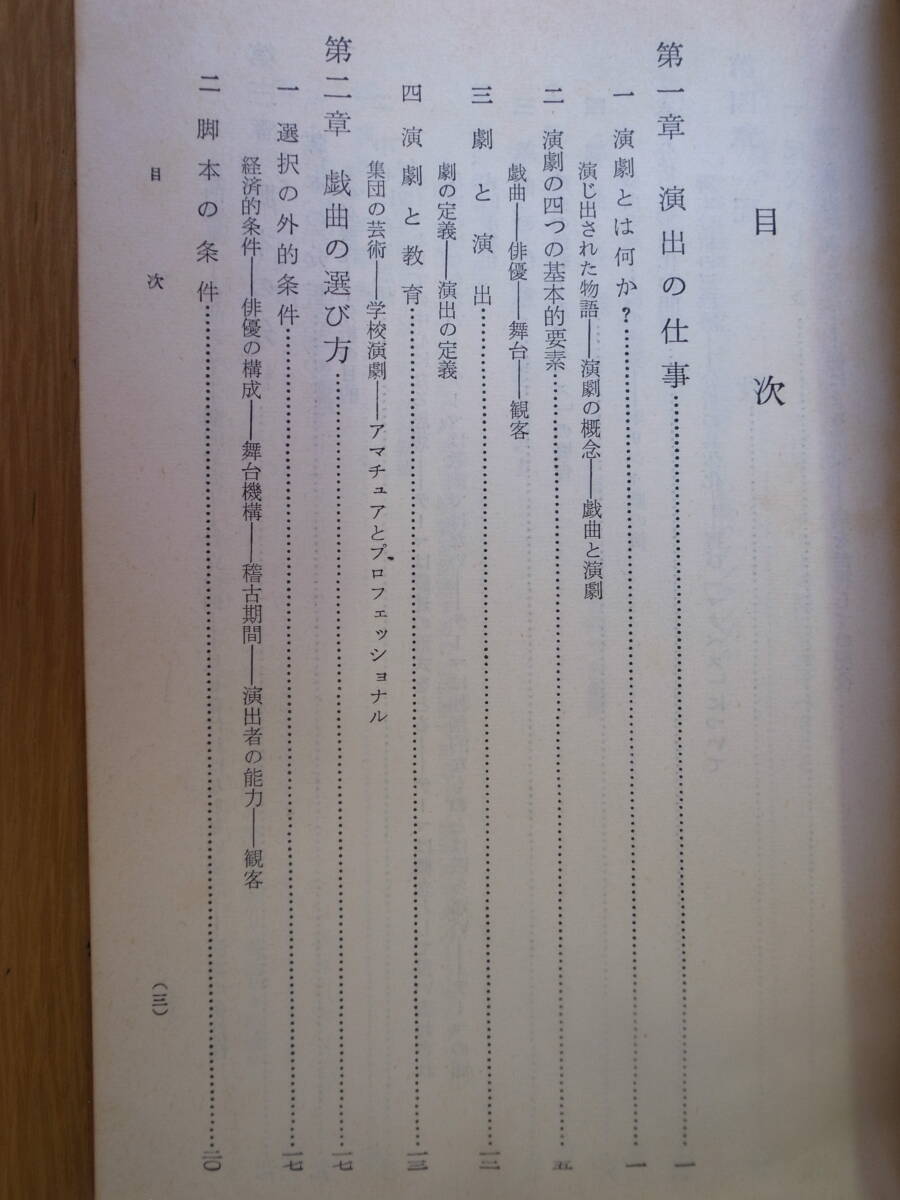 目次
第一章 演出の仕事……一
一 演劇とは何か?……一
演じ出された物語――演劇の概念――戯曲と演劇
二 演劇の四つの基本的要素……五
戯曲――俳優――舞台――観客
三 劇と演出……一二
劇の定義――演出の定義
四 演劇と教育……一三
集団の芸術――学校演劇――アマチュアとプロフェッショナル
第二章 戯曲の選び方……一七
一 選択の外的条件……一七
経済的条件――俳優の構成――舞台機構――稽古期間――演出者の能力――観客
二 脚本の条件……二〇
目次
(三)